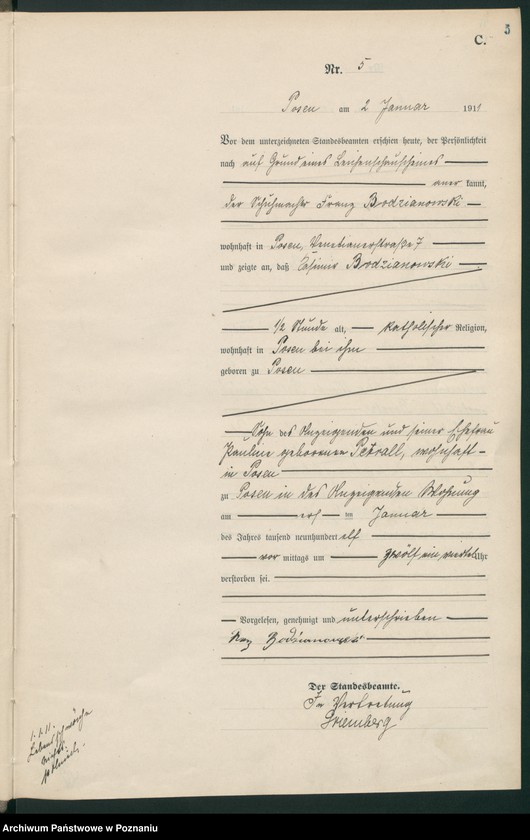 5
C.
Nr. 5
Posen am 2 Januar 1911
Vor dem unterzeichneten Standesbeamten erschien heute, der Persönlichkeit
nach auf Grund eines Leichenschauscheines
aner kannt,
der Schuhmacher Franz Bodzianowski
wohnhaft in Posen, Venetianerstraße 7
und zeigte an, daß Casimir Bodzianowski
1/2 Stunde alt, katholischer Religion,
wohnhaft in Posen bei ihm
geboren zu Posen
Sohn des Anzeigenden und seiner Ehefrau
Pauline geborenen Petrall, wohnhaft
in Posen
zu Posen in des Anzeigenden Wohnung
am ersten Januar
des Jahres tausend neunhundert elf
vor mittags um zwölf ein viertel Uhr
verstorben sei.
Vorgelesen, genehmigt und unterschrieben
Bodzianowski
Der Standesbeamte.
In Vertretung
1.1.11.
Archiwum Państwowe w Poznaniu